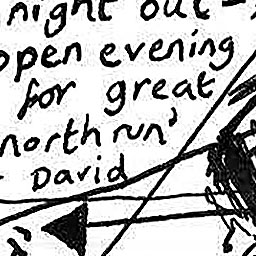 night out -
open evening
for great
north run'
- David